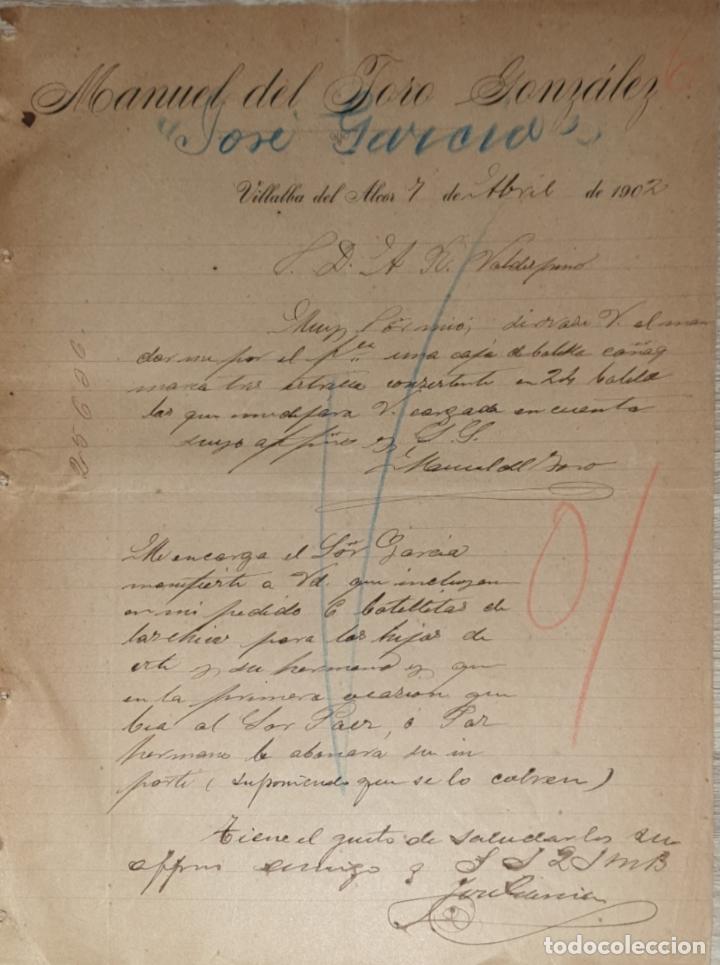 Manuel del Toro González
"José García"
Villalba del Alcor 7 de Abril de 1902
S. D. A R. Valdespino
Muy Sor mio; sirvase V. el man
darme por el una caja de botellas coñag
marca tres estrella consistente en 24 botel
las que V. cargada en cuenta
suyo affmo y S. S.
Manuel del Toro
Me encarga el Sor García
manifieste a Vd. que incluyan
en mi pedido 6 botellitas de
las chicas para las hijas de
este y su hermano y que
en la primera ocasion que
bea al Sor Paez, ó Par
hermano le abonara su in
porte (suponiendo que se lo cobren)
Tiene el gusto de saludarlos su
affmo amigo q S S Q S M B
José García
25626
todocoleccion
todocoleccion.net